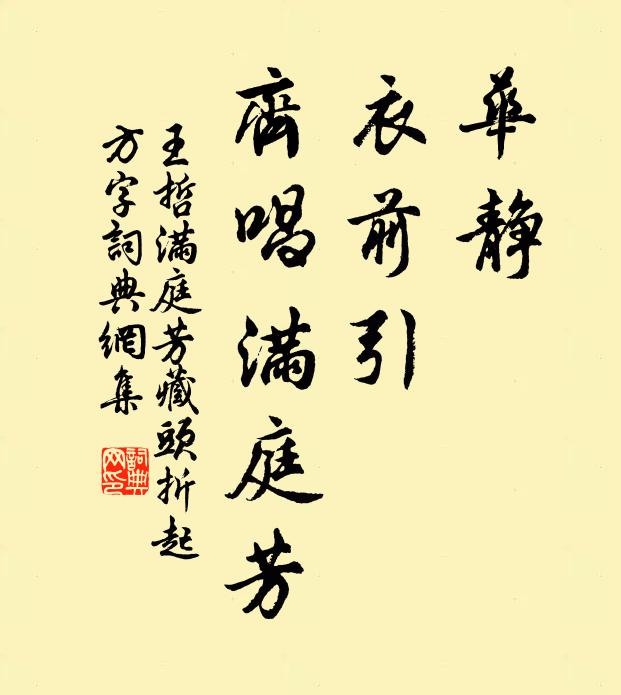 華静
衣前引
齊唱滿庭芳
王哲滿庭芳藏頭折起
方字詞典網集
詞典
网印